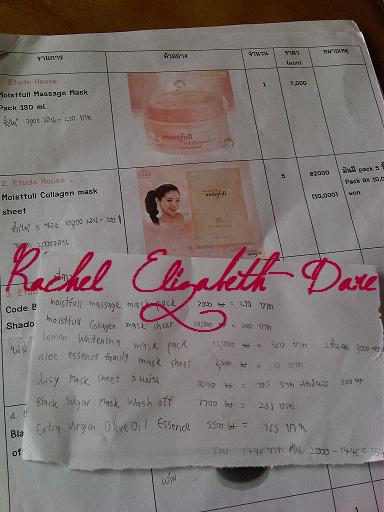 รายการ ตัวอย่าง จำนวน ราคา (won) หมายเหตุ
1. Etude House
Moistfull Massage Mask Pack 180 ml.
1 7,000
ซื้อที่ 7000 วอน = 210 บาท
moistfull
2. Etude House
Moistfull Collagen mask sheet
5 @2000 (10,000)
pack 5
won
moistfull
Rachel Elizabeth Dare
moistfull massage mask pack 7000 ₩ = 210 บาท
moistfull Collagen mask sheet 10,000 ₩ = 300 บาท
Lemon Whitening mask pack 12,000 ₩ = 360 บาท
Aloe essence family mask sheet 2,500 ₩ = 75 บาท
Juicy Mask sheet 3500 ₩ = 105 บาท
Black Sugar Mask Wash off 7700 ₩ = 231 บาท
Extra Virgin Olive Oil Essence 5500 ₩ = 165 บาท
1446 บาท 2000 - 1446 = 554